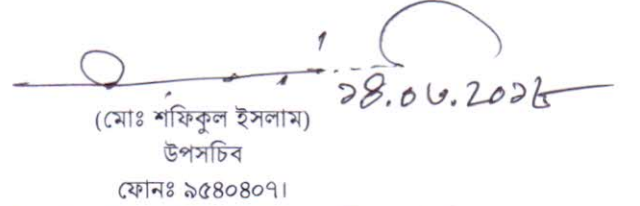 ১৪.০৬.২০১৫
(মোঃ শফিকুল ইসলাম)
উপসচিব
ফোনঃ ৯৫৪০৪০৭১।